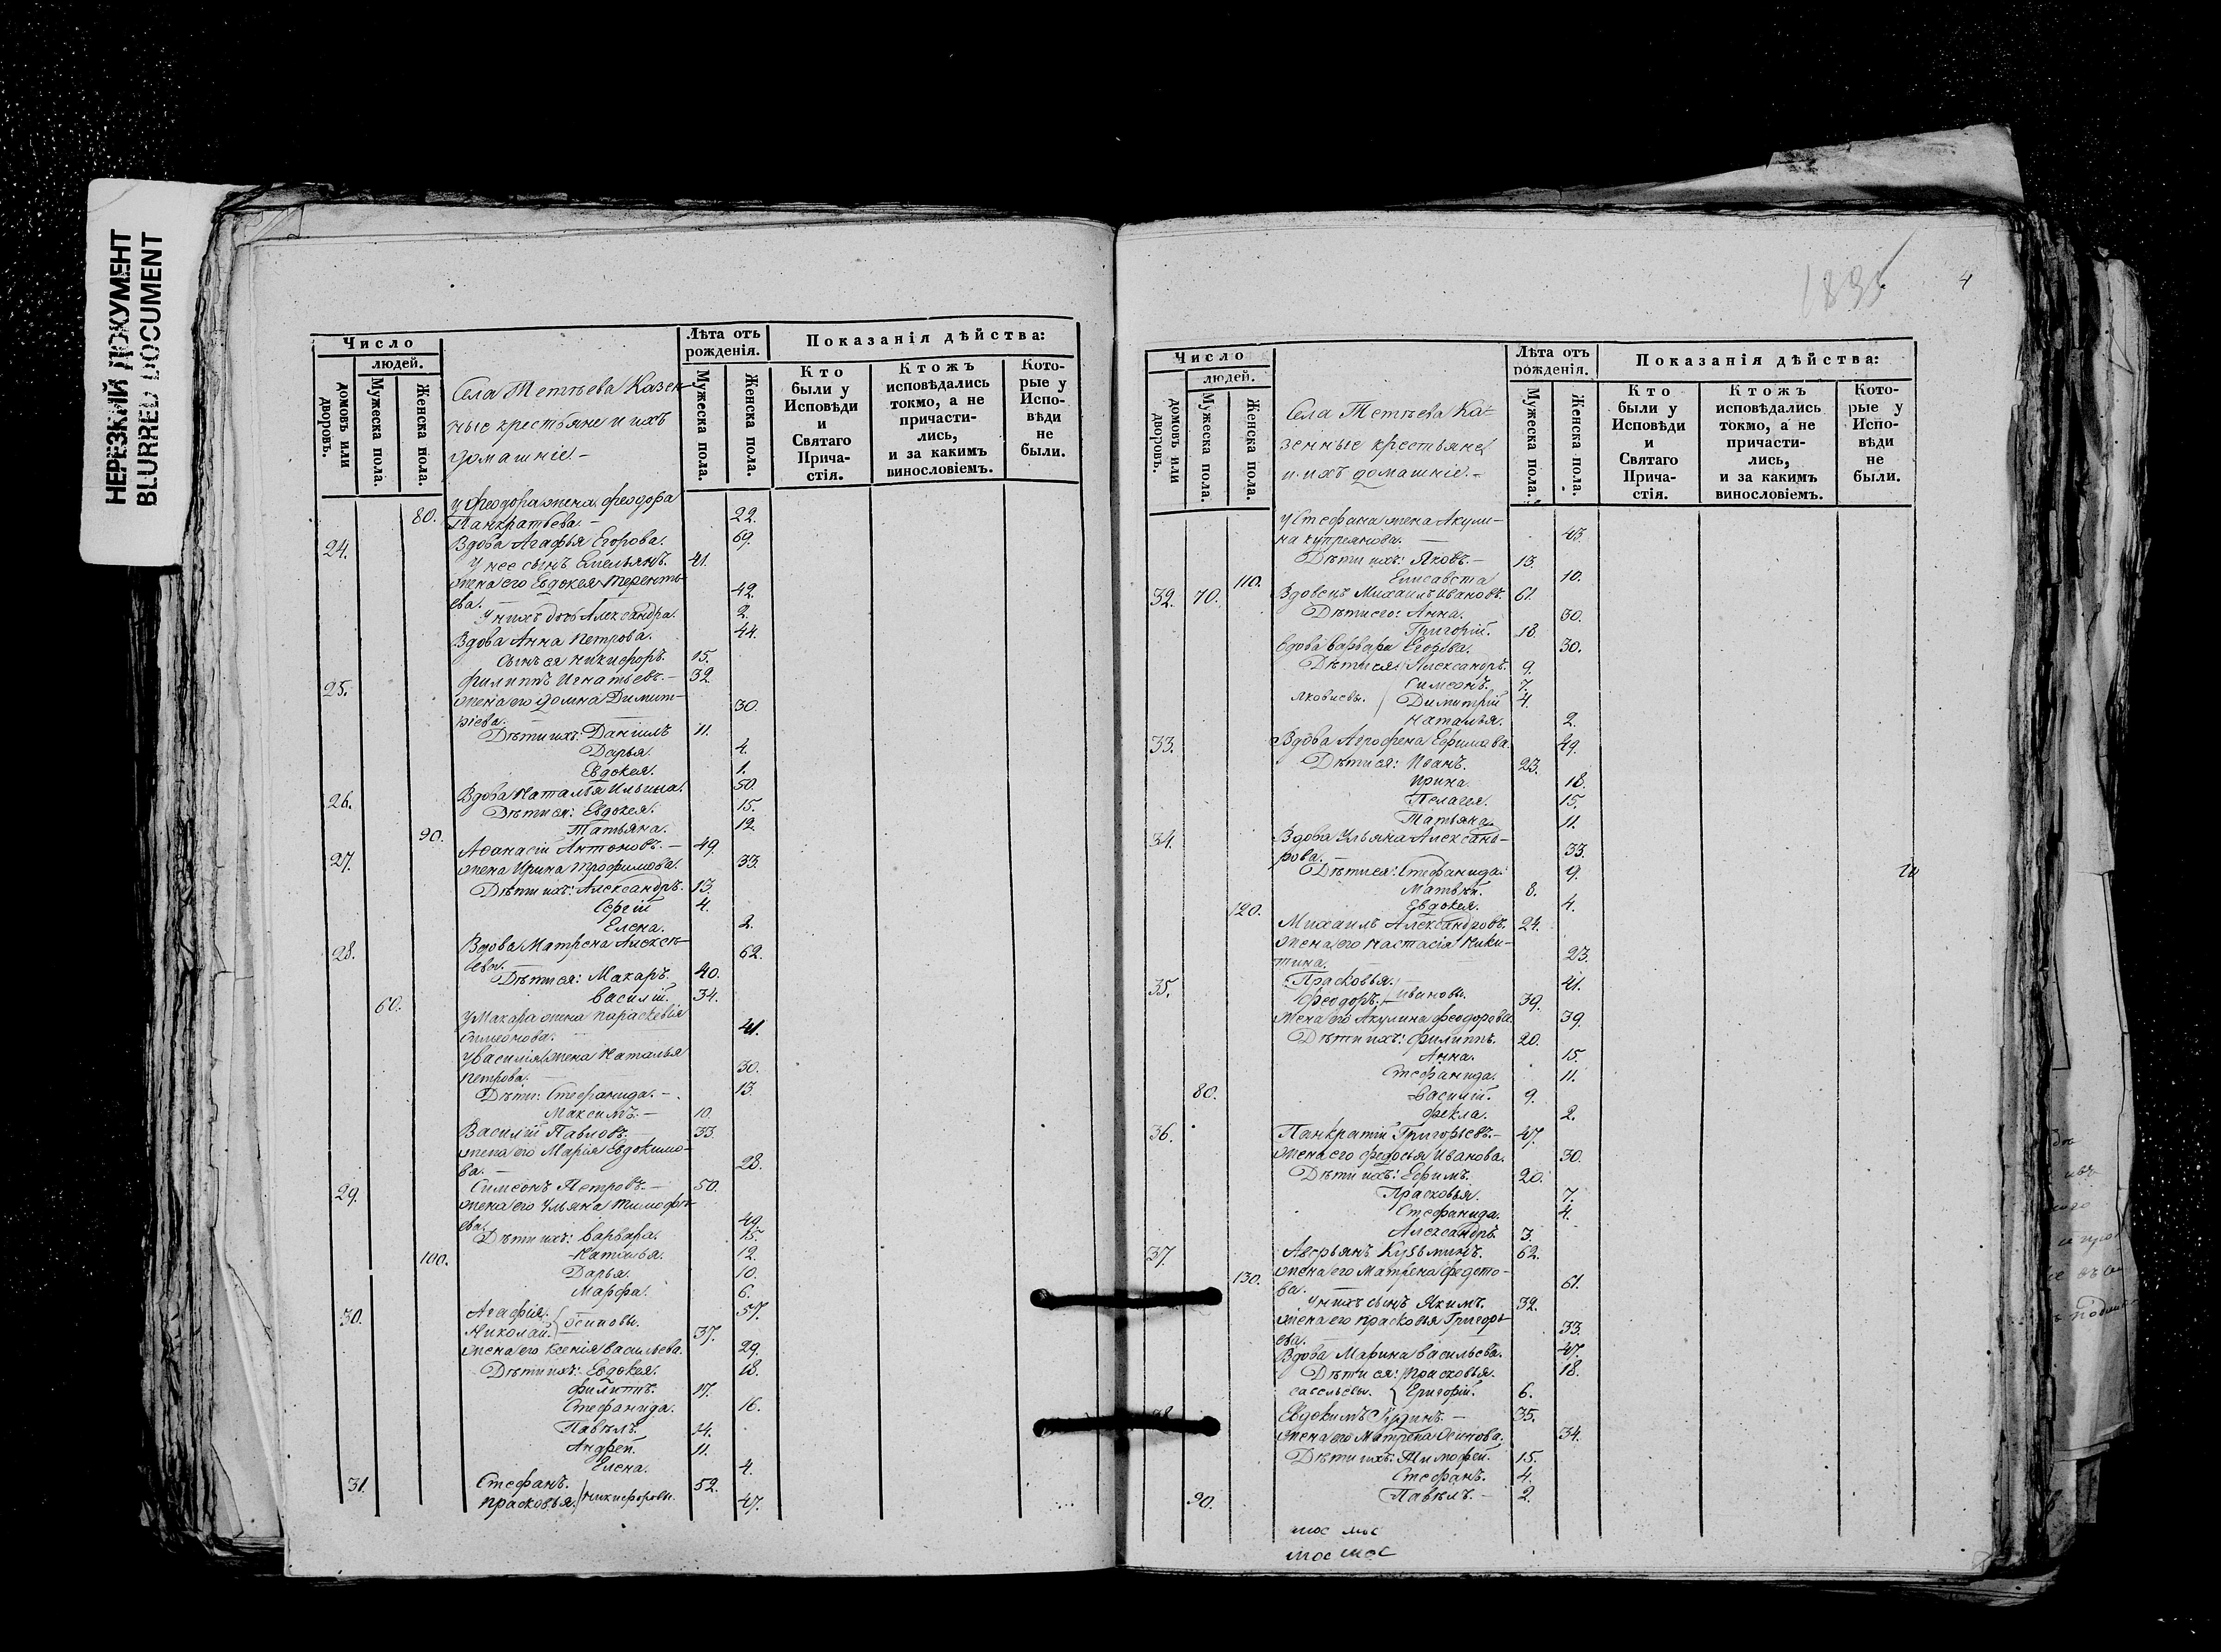 НЕРЕЗКИЙ ДОКУМЕНТ
BLURRED DOCUMENT
Число
людей.
домовъ или дворовъ.
Мужеска пола.
Женска пола.
Села Тетѣева Казен-
ные крестьяне и ихъ
домашніе. -
Лѣта отъ рожденія.
Мужеска пола.
Женска пола.
Показанія дѣйства:
Кто были у Исповѣди и Святаго Прича-стія.
Ктожъ исповѣдались токмо, а не причасти-лись, и за какимъ винословіемъ.
Кото-рые у Испо-вѣди не были.
у Феодора жена Феодора
80. Панкратьева. - 22.
24. Вдова Агафья Егорова. 69.
У нее сынъ Емельянъ. 41.
жена его Евдокея Теренть-
ева. 42.
У нихъ дочь Александра. 2.
Вдова Анна Петрова. 44.
Сынъ ея Никифоръ. 15.
25. Филиппъ Игнатьевъ. - 32.
жена его Домна Димит-
ріева. 30.
Дѣти ихъ: Даніилъ 11.
Дарья. 4.
Евдокея. 1.
26. Вдова Наталья Ильина. 50.
Дѣти ея: Евдокея. 15.
90. Татьяна. 12.
27. Аѳанасій Антоновъ. - 49.
жена Ирина Трофимова. 33.
Дѣти ихъ: Александръ. 13.
Сергій 4.
Елена. 2.
28. Вдова Матрена Алексѣ-
ева. 62.
Дѣти ея: Макаръ. 40.
60. Василій. 34.
у Макара жена Параскевія
Симеонова. 41.
у Василія жена Наталья
Петрова. 30.
Дѣти: Стефанида. - 13.
Максимъ. - 10.
Василій Павловъ. - 33.
жена его Марья Евдокимо-
ва. - 28.
29. Симеонъ Петровъ. - 50.
жена его Ульяна Тимофѣ-
ева. 49.
Дѣти ихъ: Варвара. 15.
100. Наталья. 12.
Дарья. 10.
Марфа. 6.
30. Агафія. 57.
Николай. Осиповы. 37.
жена его Ксенія Васильева. 29.
Дѣти ихъ: Евдокея. 18.
Филиппъ. 17.
Стефанида. 16.
Павелъ. 14.
Андрей. 11.
Елена. 4.
31. Стефанъ. 52.
Прасковья. Никифоровы. 47.
1835
4
Число
людей.
домовъ или дворовъ.
Мужеска пола.
Женска пола.
Села Тетѣева Ка-
зенные крестьяне
и ихъ домашніе. -
Лѣта отъ рожденія.
Мужеска пола.
Женска пола.
Показанія дѣйства:
Кто были у Исповѣди и Святаго Прича-стія.
Ктожъ исповѣдались токмо, а не причасти-лись, и за какимъ винословіемъ.
Кото-рые у Испо-вѣди не были.
у Стефана жена Акули-
на Купреянова. - 43.
Дѣти ихъ: Яковъ. - 13.
110. Елисавета 10.
32. 70. Вдовецъ Михаилъ Ивановъ. 61.
Дѣти его: Анна. 30.
Григорій. 18.
Вдова Варвара Егорова. 30.
Дѣти ея: Александръ. 9.
Симеонъ. 7.
Яковлевы. Димитрій 4.
Наталья. 2.
33. Вдова Агрофена Ефимова. 49.
Дѣти ея: Иванъ. 23.
Ирина. 18.
Пелагея. 15.
Татьяна. 11.
34. Вдова Ульяна Александ-
рова. - 33.
Дѣти ея: Стефанида. 9.
Матвѣй. 8.
120. Евдокея. 4.
Михаилъ Александровъ. 24.
жена его Настасія Ники-
тина. 23.
35. Прасковья. 41.
Феодоръ. Ивановы. 39.
жена его Акулина Феодорова. 39.
Дѣти ихъ: Филиппъ. 20.
Анна. 15.
Стефанида. 11.
80. Василій. 9.
Фекла. 2.
36. Панкратій Григорьевъ. - 47.
жена его Федосья Иванова. 30.
Дѣти ихъ: Ефимъ. 20.
Прасковья. 7.
Стефанида. 4.
Александръ. 3.
37. Аверьянъ Кузьминъ. 62.
130. жена его Матрена Федото-
ва. 61.
У нихъ сынъ Якимъ. 32.
жена его Прасковья Григорь-
ева. - 33.
Вдова Марина Васильева. 47.
Дѣти ея: Прасковья. 18.
Савельевы. Григорій. 6.
38. Евдокимъ - 35.
жена его Матрена Осипова. 34.
Дѣти ихъ: Тимофей. 15.
Стефанъ. 4.
90. Павелъ. - 2.